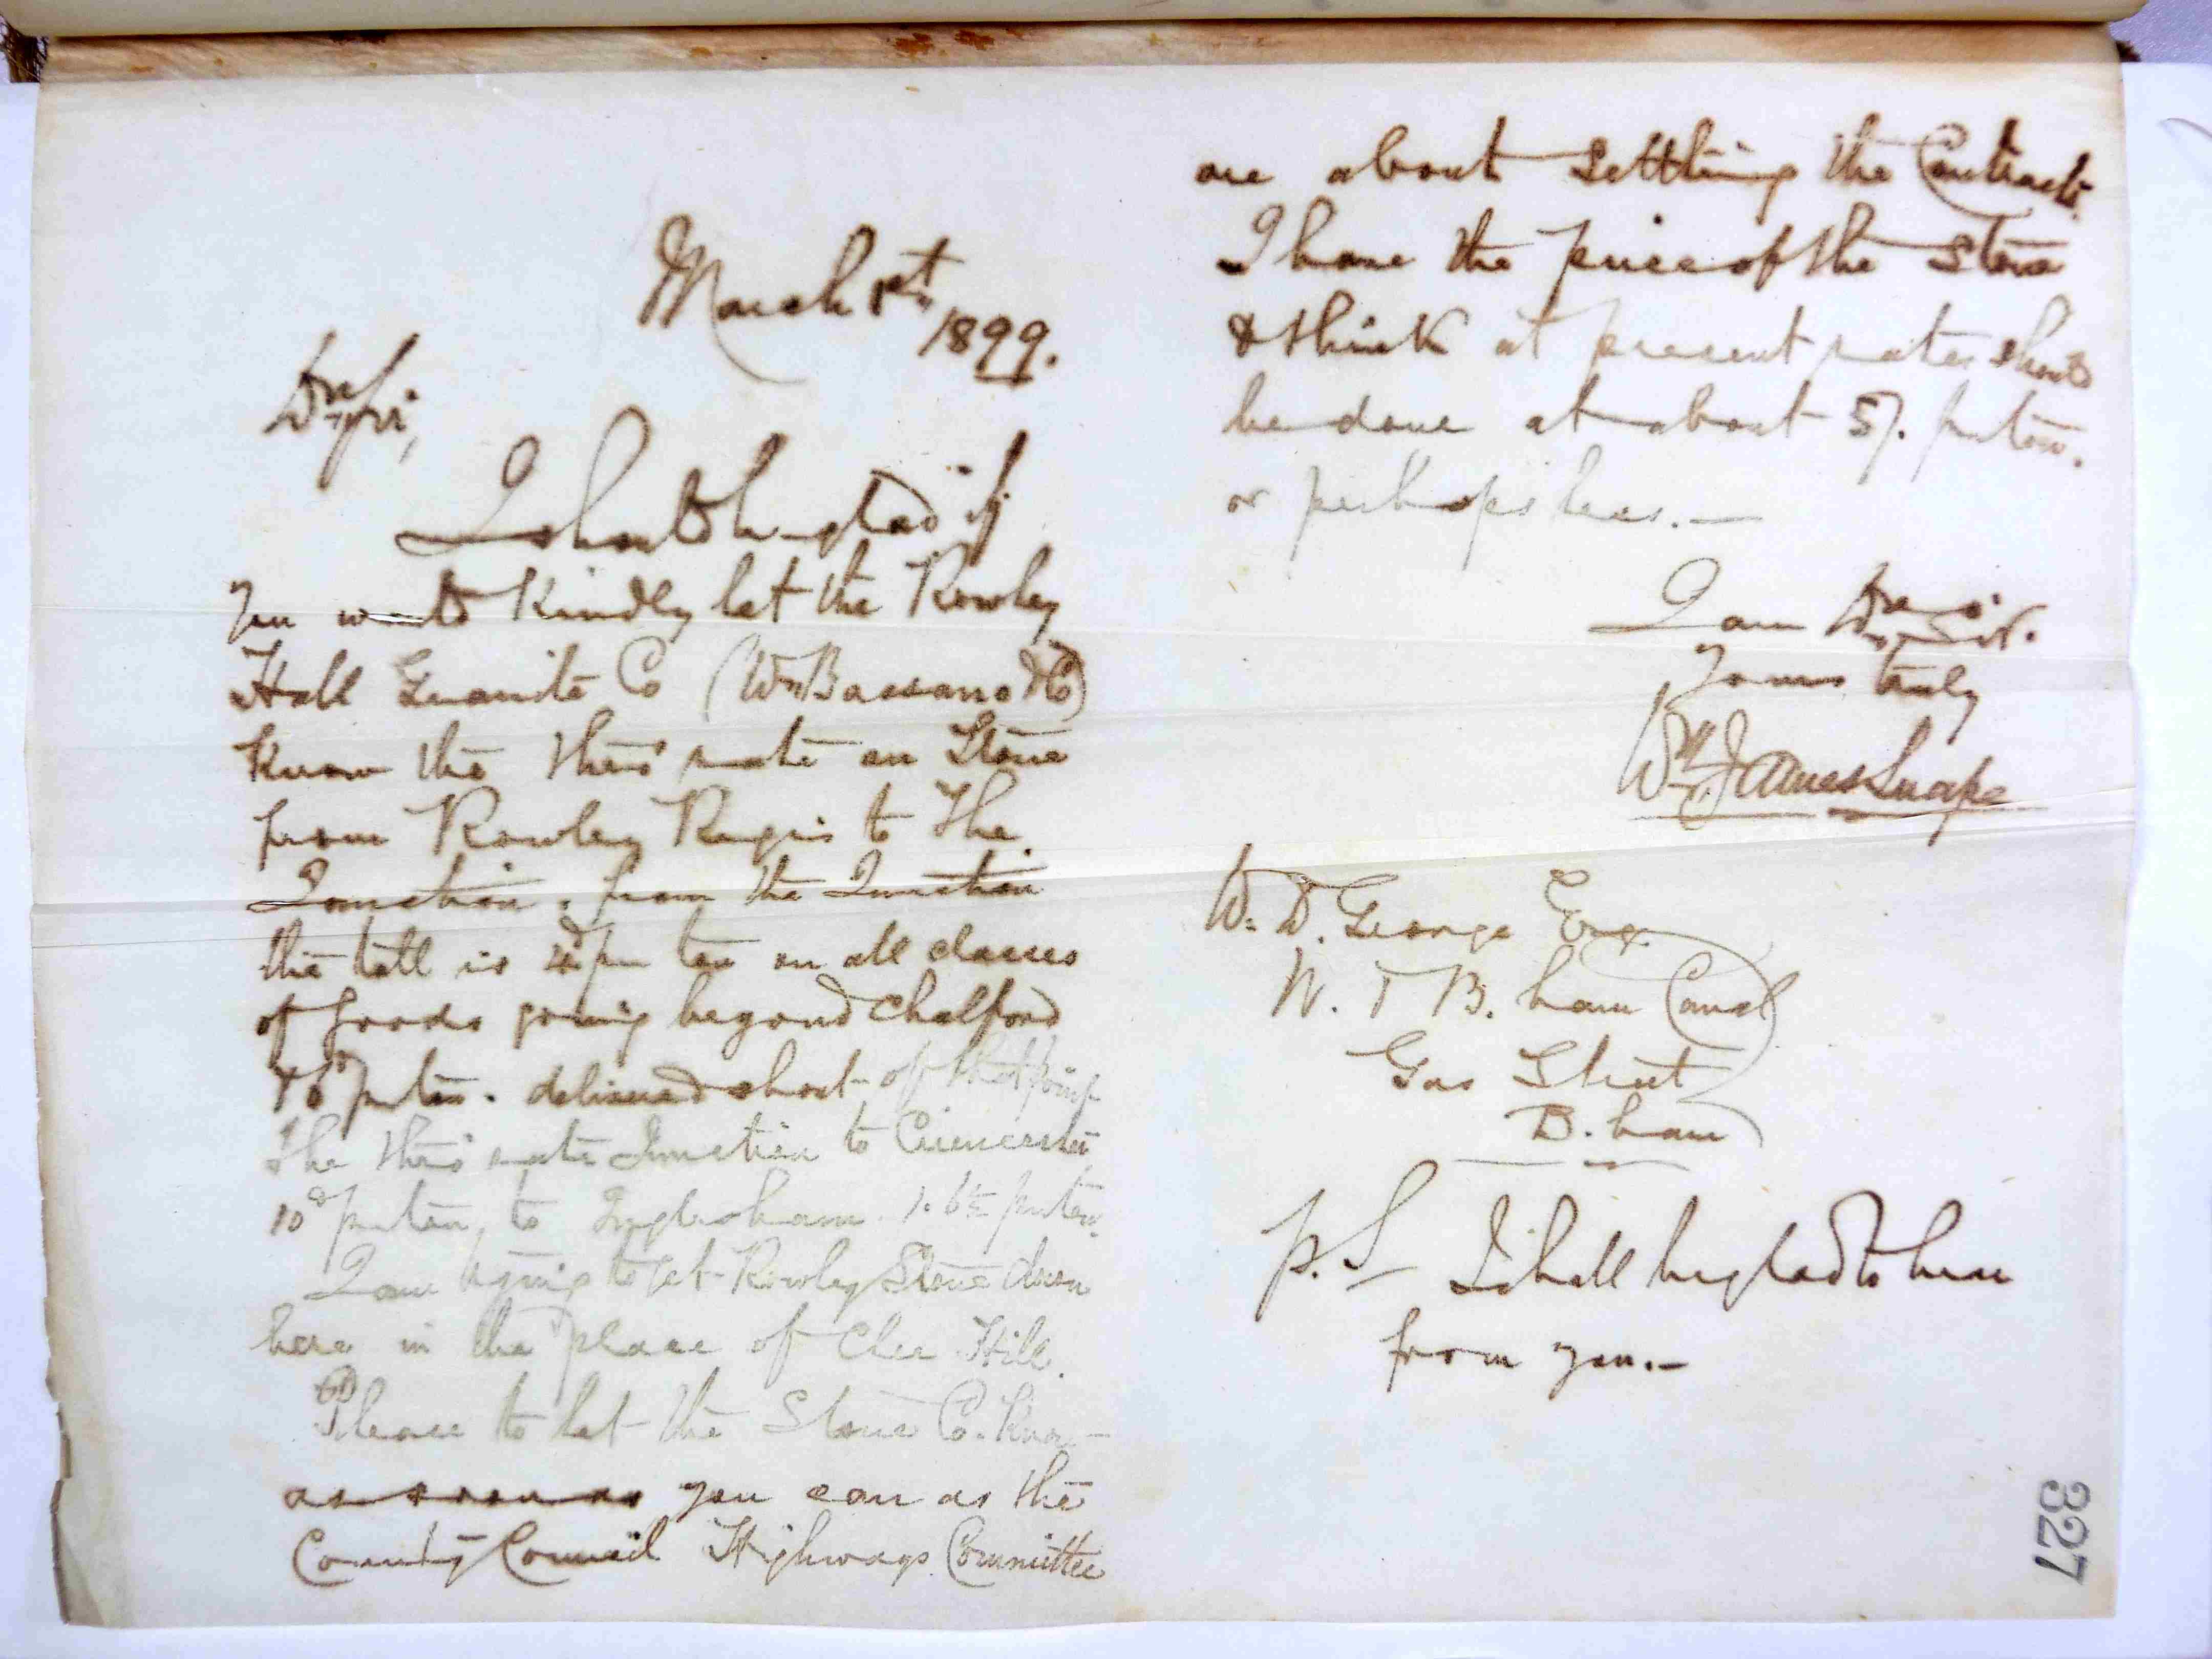 March 1st
1899.
Dr Sir,
I should be glad if
you would kindly let the Rowley
Hall Granite Co (Wm Bassano & Co)
know the thro' rate on Stone
from Rowley Regis to The
Junction. from the Junction
the toll is per ton on all classes
of goods going beyond Chalford
& 6d per ton. delivered short of that point
The thro' rate Junction to Cirencester
10d per ton, to Inglesham 1.6½ per ton.
I am trying to get Rowley Stone down
here in the place of Clee Hill.
Please to let the Stone Co. know
as soon as you can as the
County Council Highways Committee
are about settling the Contracts.
I have the price of the Stone
& think at present rates should
be done at about 5/. per ton.
or perhaps less.—
I am Dr Sir.
Yours truly
Wm James Snape
W. D. George Esq.
W. & B. ham Canal
Gas Street
B. ham
P.S I shall be glad to hear
from you.—
327